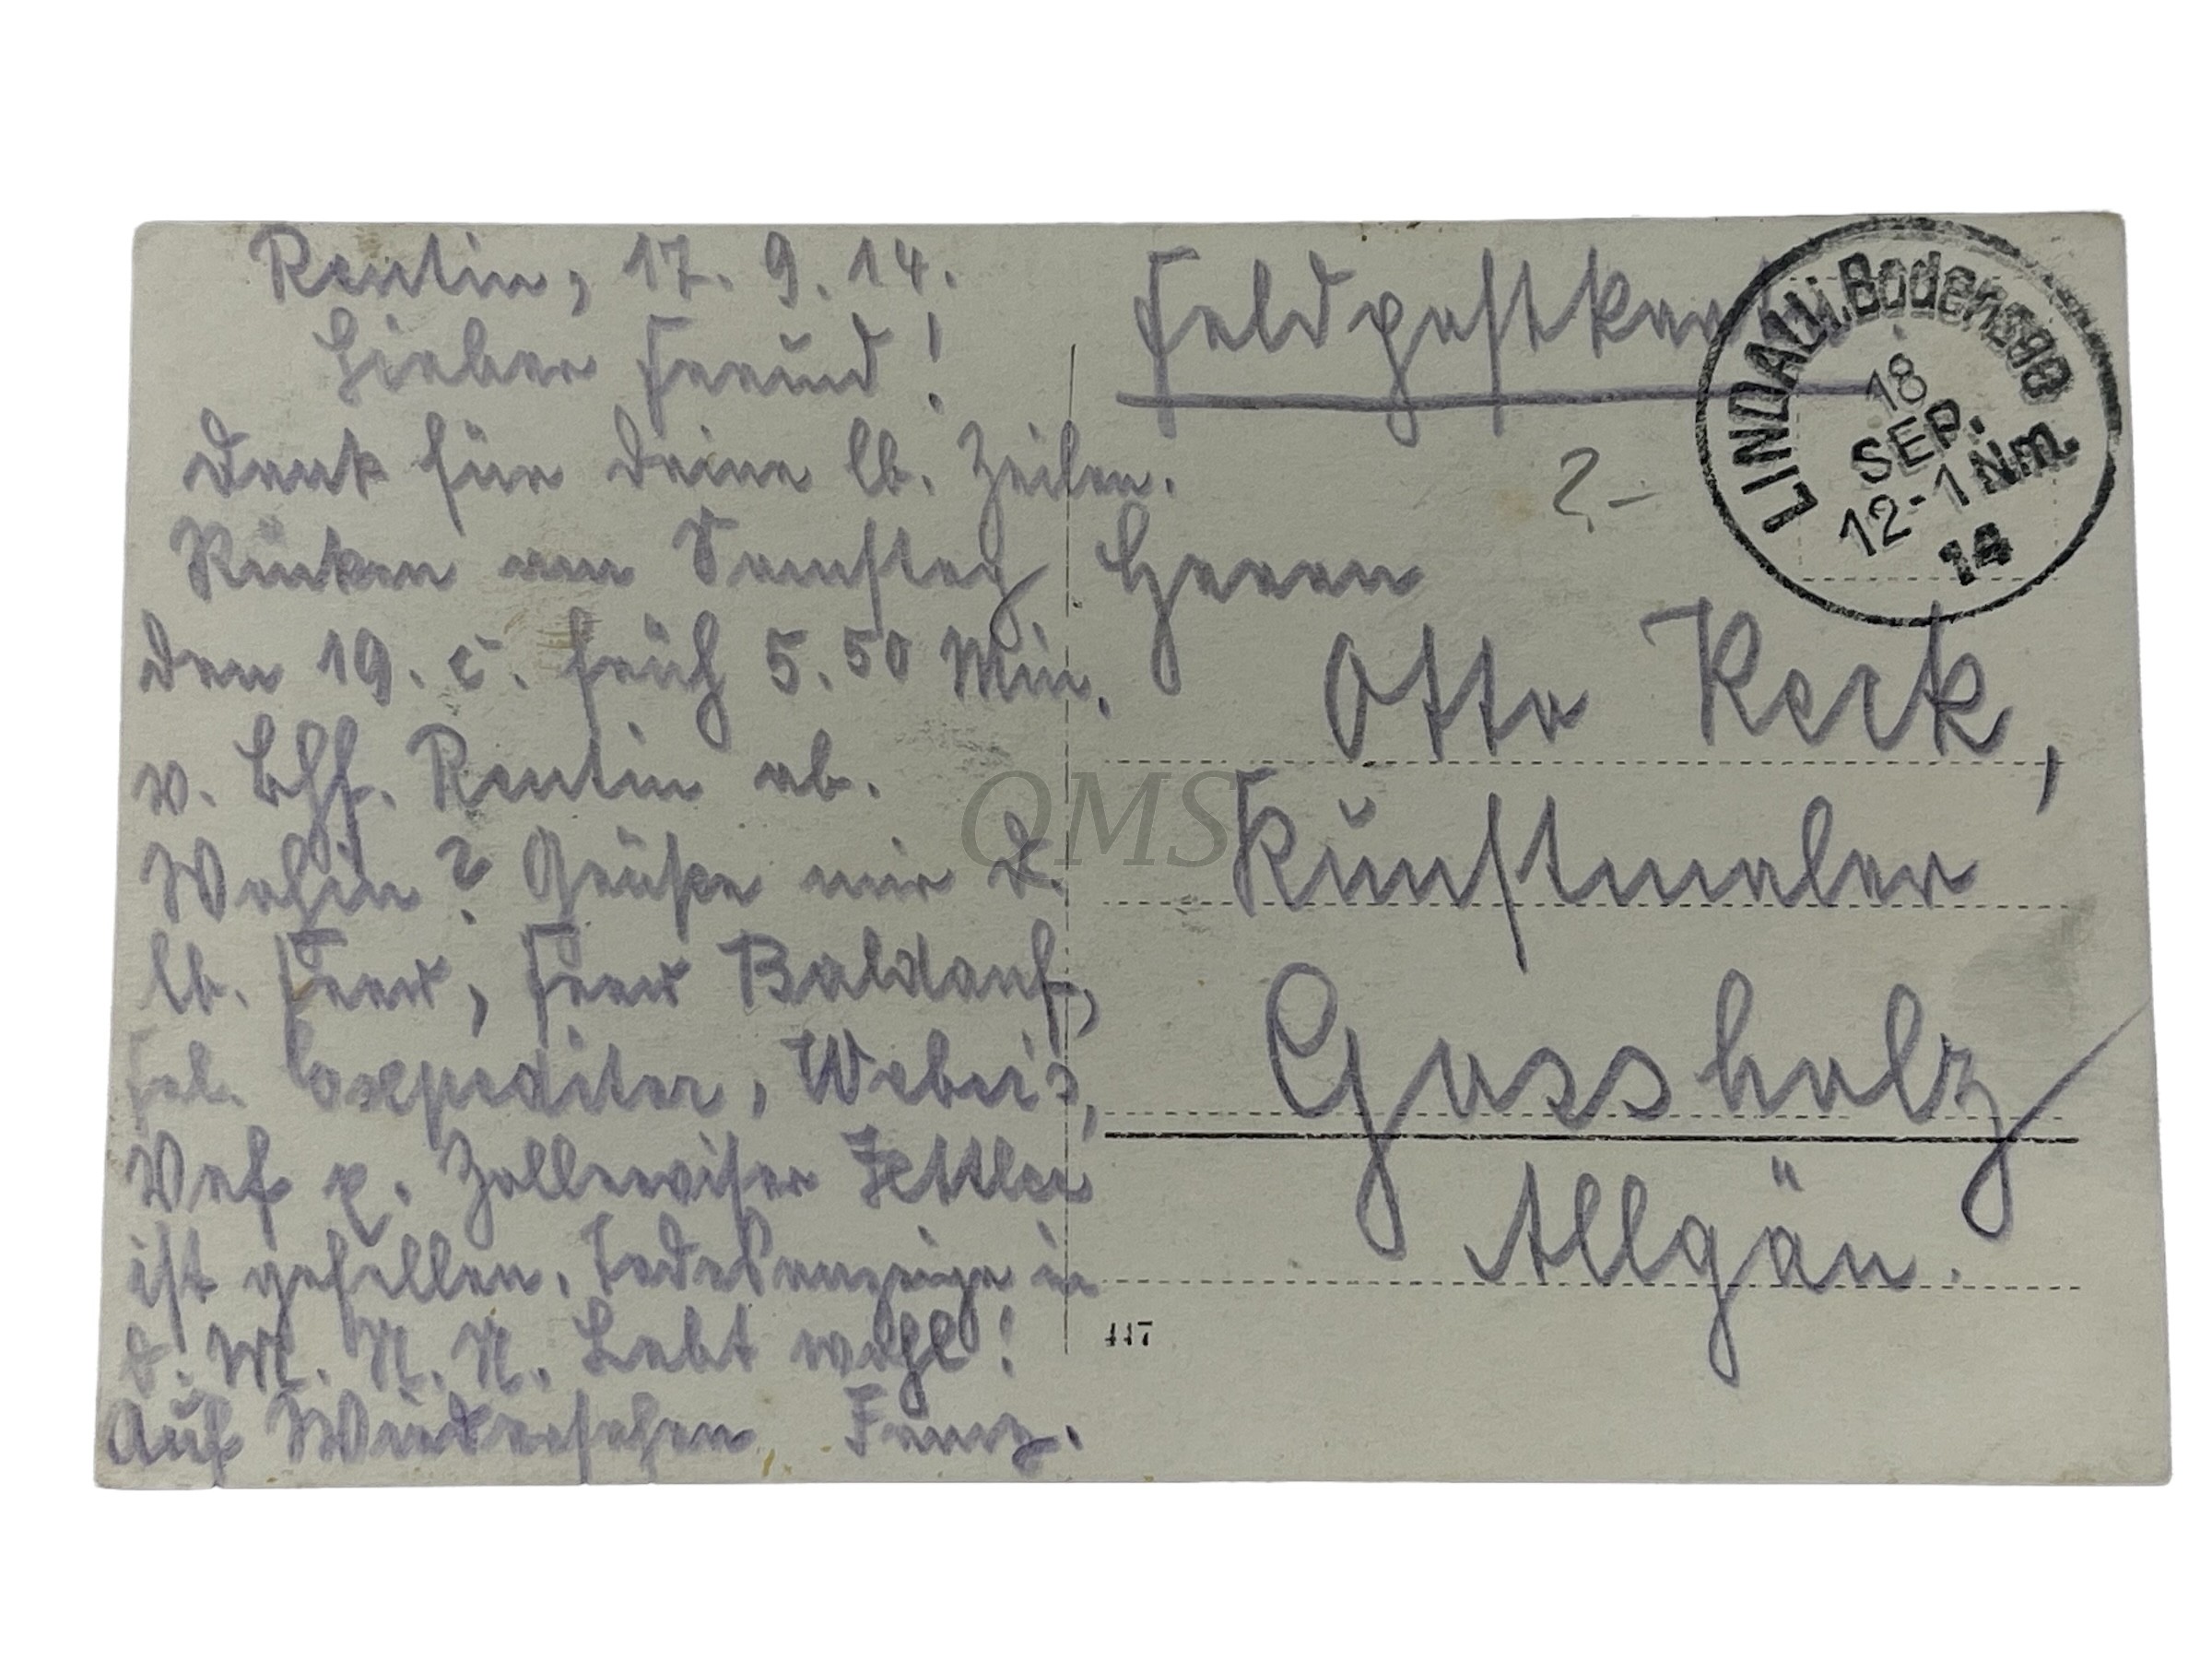 Reutin, 17. 9. 14.
Lieber Freund!
Dank für Deine lb. Zeilen.
Rücken am Samstag
den 19. c. früh 5.50 Min.
v. Bhf. Reutin ab.
Wohin? Grüße mir D.
lb. Frau, Frau Baldauf,
Frl. Expeditor, Weber's,
Vef. p. Zettler
ist gefallen. Todesanzeige in
d. M. N. N. Lebt wohl!
Auf Wiedersehen Franz.
Feldpostkarte
LINDAU i. Bodensee
18
SEP.
12-1 Nm.
14
2.-
Herrn
Otto Keck,
Kunstmaler
Gossholz
Allgäu.
117
QMS